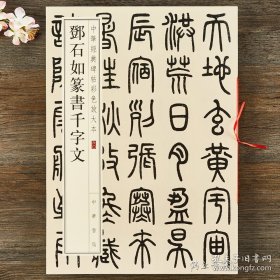 天地玄黃宇宙
洪荒日月盈昃
辰宿列張寒來
暑往秋收冬藏
中華經典碑帖彩色放大本
鄧石如篆書千字文
中華書局
孔夫子旧书网